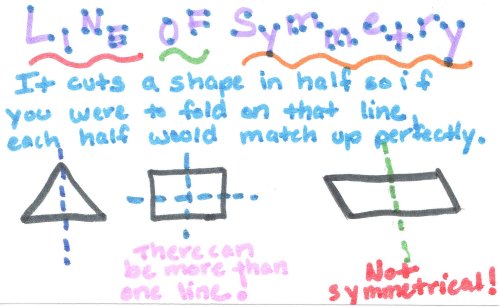 LINE OF Symmetry
It cuts a shape in half so if
you were to fold on that line,
each half would match up perfectly.
There can
be more than
one line!
Not
symmetrical!